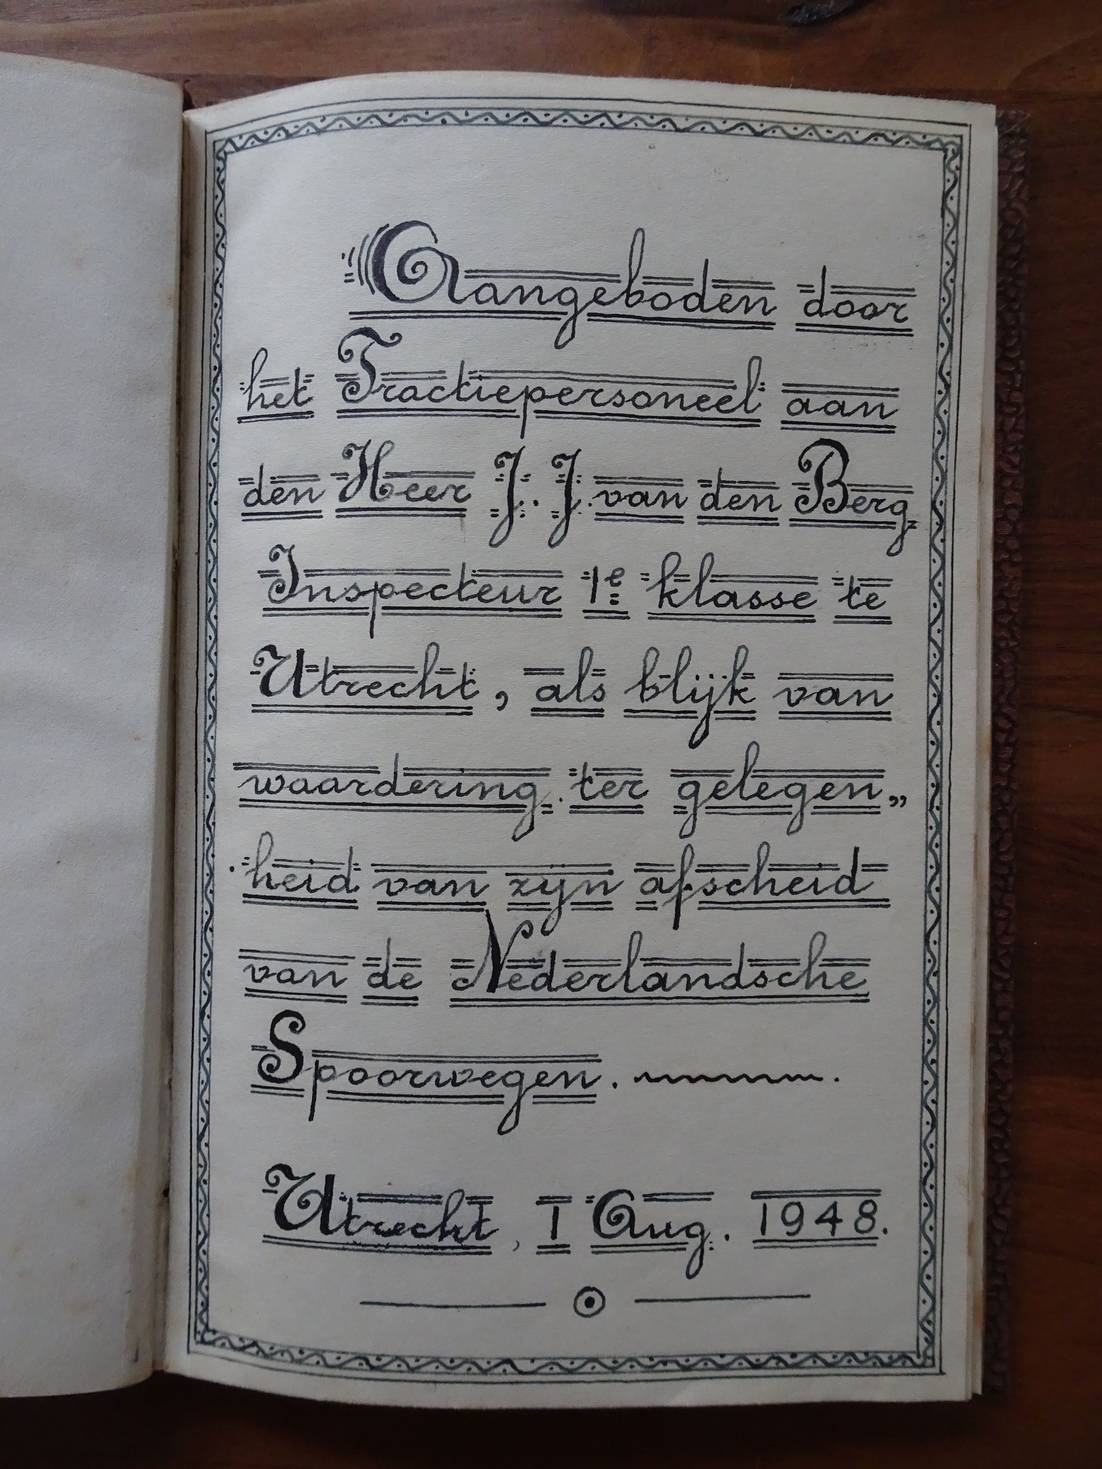 Aangeboden door
het Tractiepersoneel aan
den Heer J. J. van den Berg
Inspecteur 1e klasse te
Utrecht, als blijk van
waardering ter gelegen„
heid van zijn afscheid
van de Nederlandsche
Spoorwegen.
Utrecht, 1 Aug. 1948.